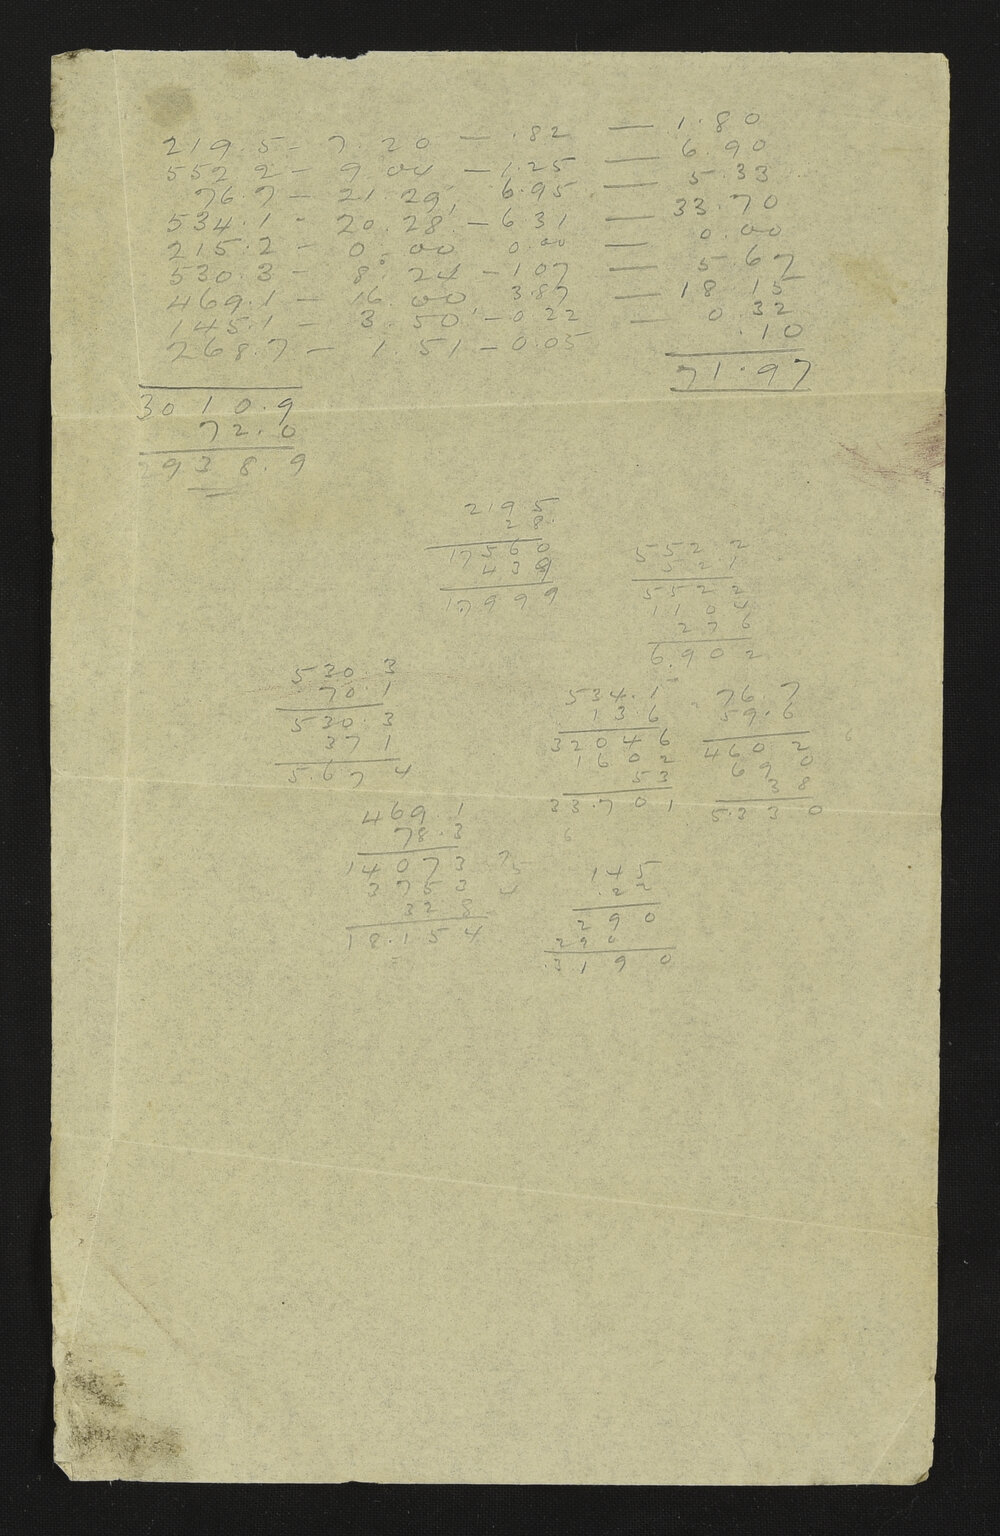 219.5 - 7.20 - .82 — 1.80
552.2 - 9.04 - 1.25 — 6.90
76.7 - 21.29, 6.95 — 5.33
534.1 - 20.28 - 6.31 — 33.70
215.2 - 0.00 0.00 — 0.00
530.3 - 8.24 - 1.07 — 5.67
469.1 - 16.00 3.87 — 18.15
145.1 - 3.50 - 0.22 — 0.32
268.7 - 1.51 - 0.05 .10
71.97
3010.9
72.0
2938.9
219.5
28.
17560
439
17999
552.2
521
5522
1104
276
6.902
530.3
70.1
530.3
371
5.674
534.1
13.6
32046
1602
53
33.701
6
76.7
59.6
4602
690
38
5.330
469.1
78.3
14073
3753
328
18.154
145
.22
290
290
.3190